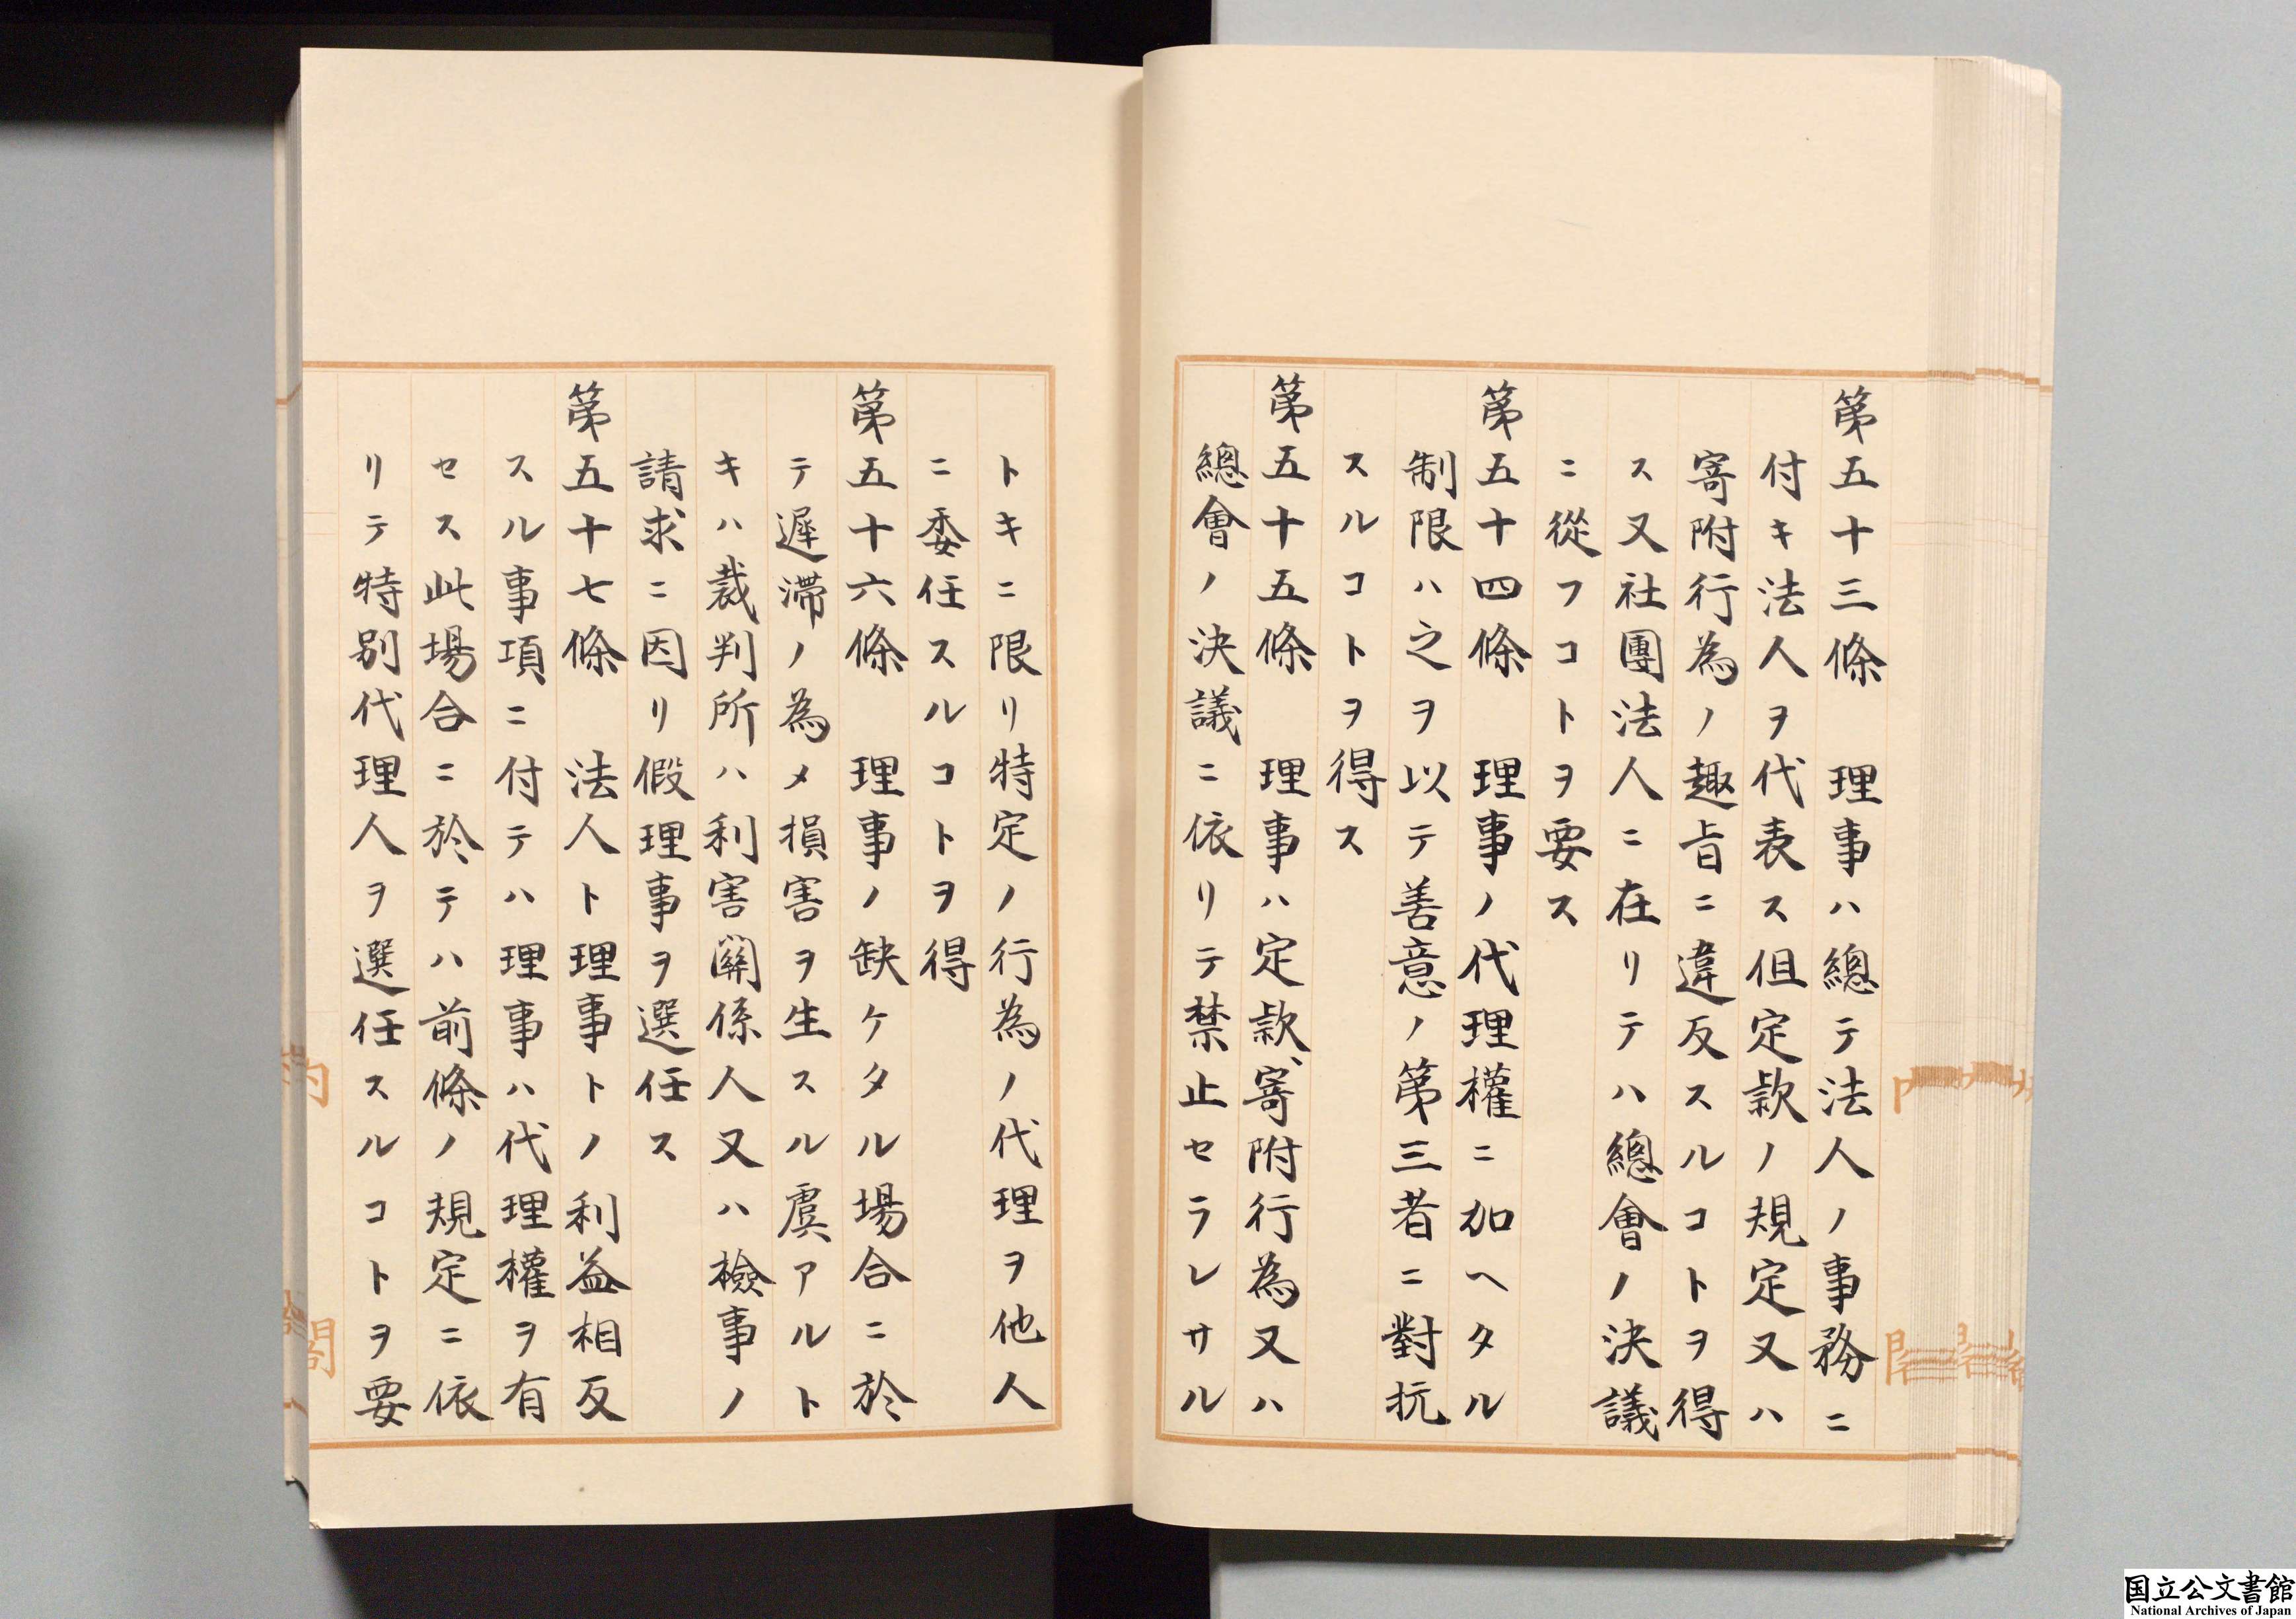 第五十三條　理事ハ總テ法人ノ事務ニ
付キ法人ヲ代表ス但定款ノ規定又ハ
寄附行為ノ趣旨ニ違反スルコトヲ得
ス又社團法人ニ在リテハ總會ノ決議
ニ從フコトヲ要ス
第五十四條　理事ノ代理權ニ加ヘタル
制限ハ之ヲ以テ善意ノ第三者ニ對抗
スルコトヲ得ス
第五十五條　理事ハ定款、寄附行為又ハ
總會ノ決議ニ依リテ禁止セラレサル
トキニ限リ特定ノ行為ノ代理ヲ他人
ニ委任スルコトヲ得
第五十六條　理事ノ缺ケタル場合ニ於
テ遲滯ノ為メ損害ヲ生スル虞アルト
キハ裁判所ハ利害關係人又ハ檢事ノ
請求ニ因リ假理事ヲ選任ス
第五十七條　法人ト理事トノ利益相反
スル事項ニ付テハ理事ハ代理權ヲ有
セス此場合ニ於テハ前條ノ規定ニ依
リテ特別代理人ヲ選任スルコトヲ要
国立公文書館
National Archives of Japan